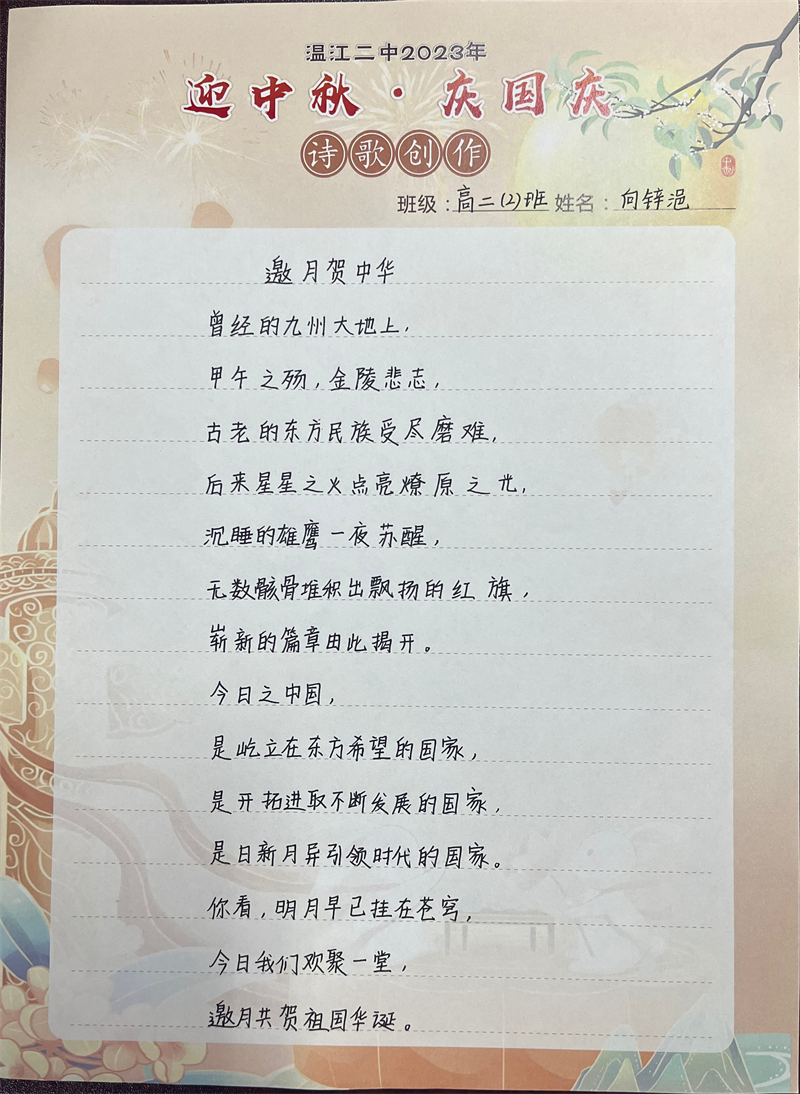 温江二中2023年
迎中秋·庆国庆
诗歌创作
班级：高二(2)班 姓名：向锌浥
邀月贺中华
曾经的九州大地上，
甲午之殇，金陵悲志，
古老的东方民族受尽磨难，
后来星星之火点亮燎原之光，
沉睡的雄鹰一夜苏醒，
无数骸骨堆积出飘扬的红旗，
崭新的篇章由此揭开。
今日之中国，
是屹立在东方希望的国家，
是开拓进取不断发展的国家，
是日新月异引领时代的国家。
你看，明月早已挂在苍穹，
今日我们欢聚一堂，
邀月共贺祖国华诞。